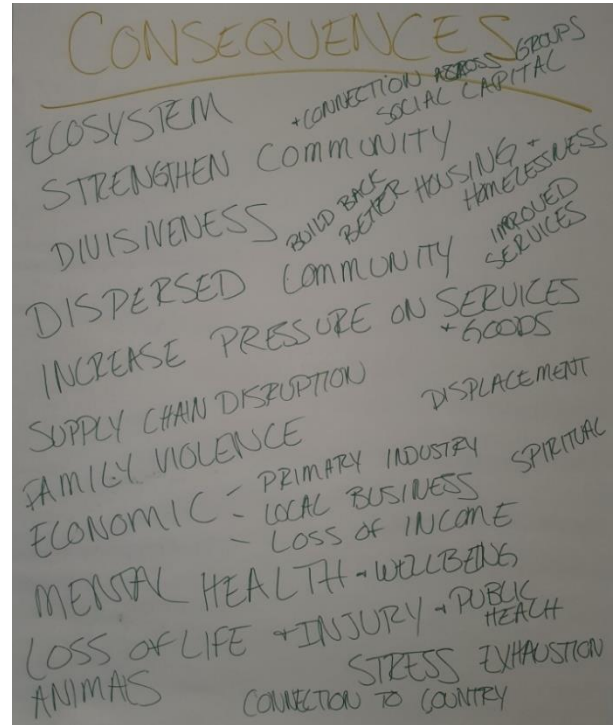 CONSEQUENCES
ECOSYSTEM
+ CONNECTION ACROSS GROUPS
SOCIAL CAPITAL
STRENGTHEN COMMUNITY
DIVISIVENESS
BUILD BACK
BETTER HOUSING +
HOMELESSNESS
DISPERSED COMMUNITY
IMPROVED
SERVICES
INCREASE PRESSURE ON SERVICES
+ GOODS
SUPPLY CHAIN DISRUPTION
DISPLACEMENT
FAMILY VIOLENCE
SPIRITUAL
ECONOMIC - PRIMARY INDUSTRY
- LOCAL BUSINESS
- LOSS OF INCOME
MENTAL HEALTH + WELLBEING
LOSS OF LIFE + INJURY + PUBLIC
HEALH
ANIMALS
STRESS EXHAUSTION
CONNECTION TO COUNTRY